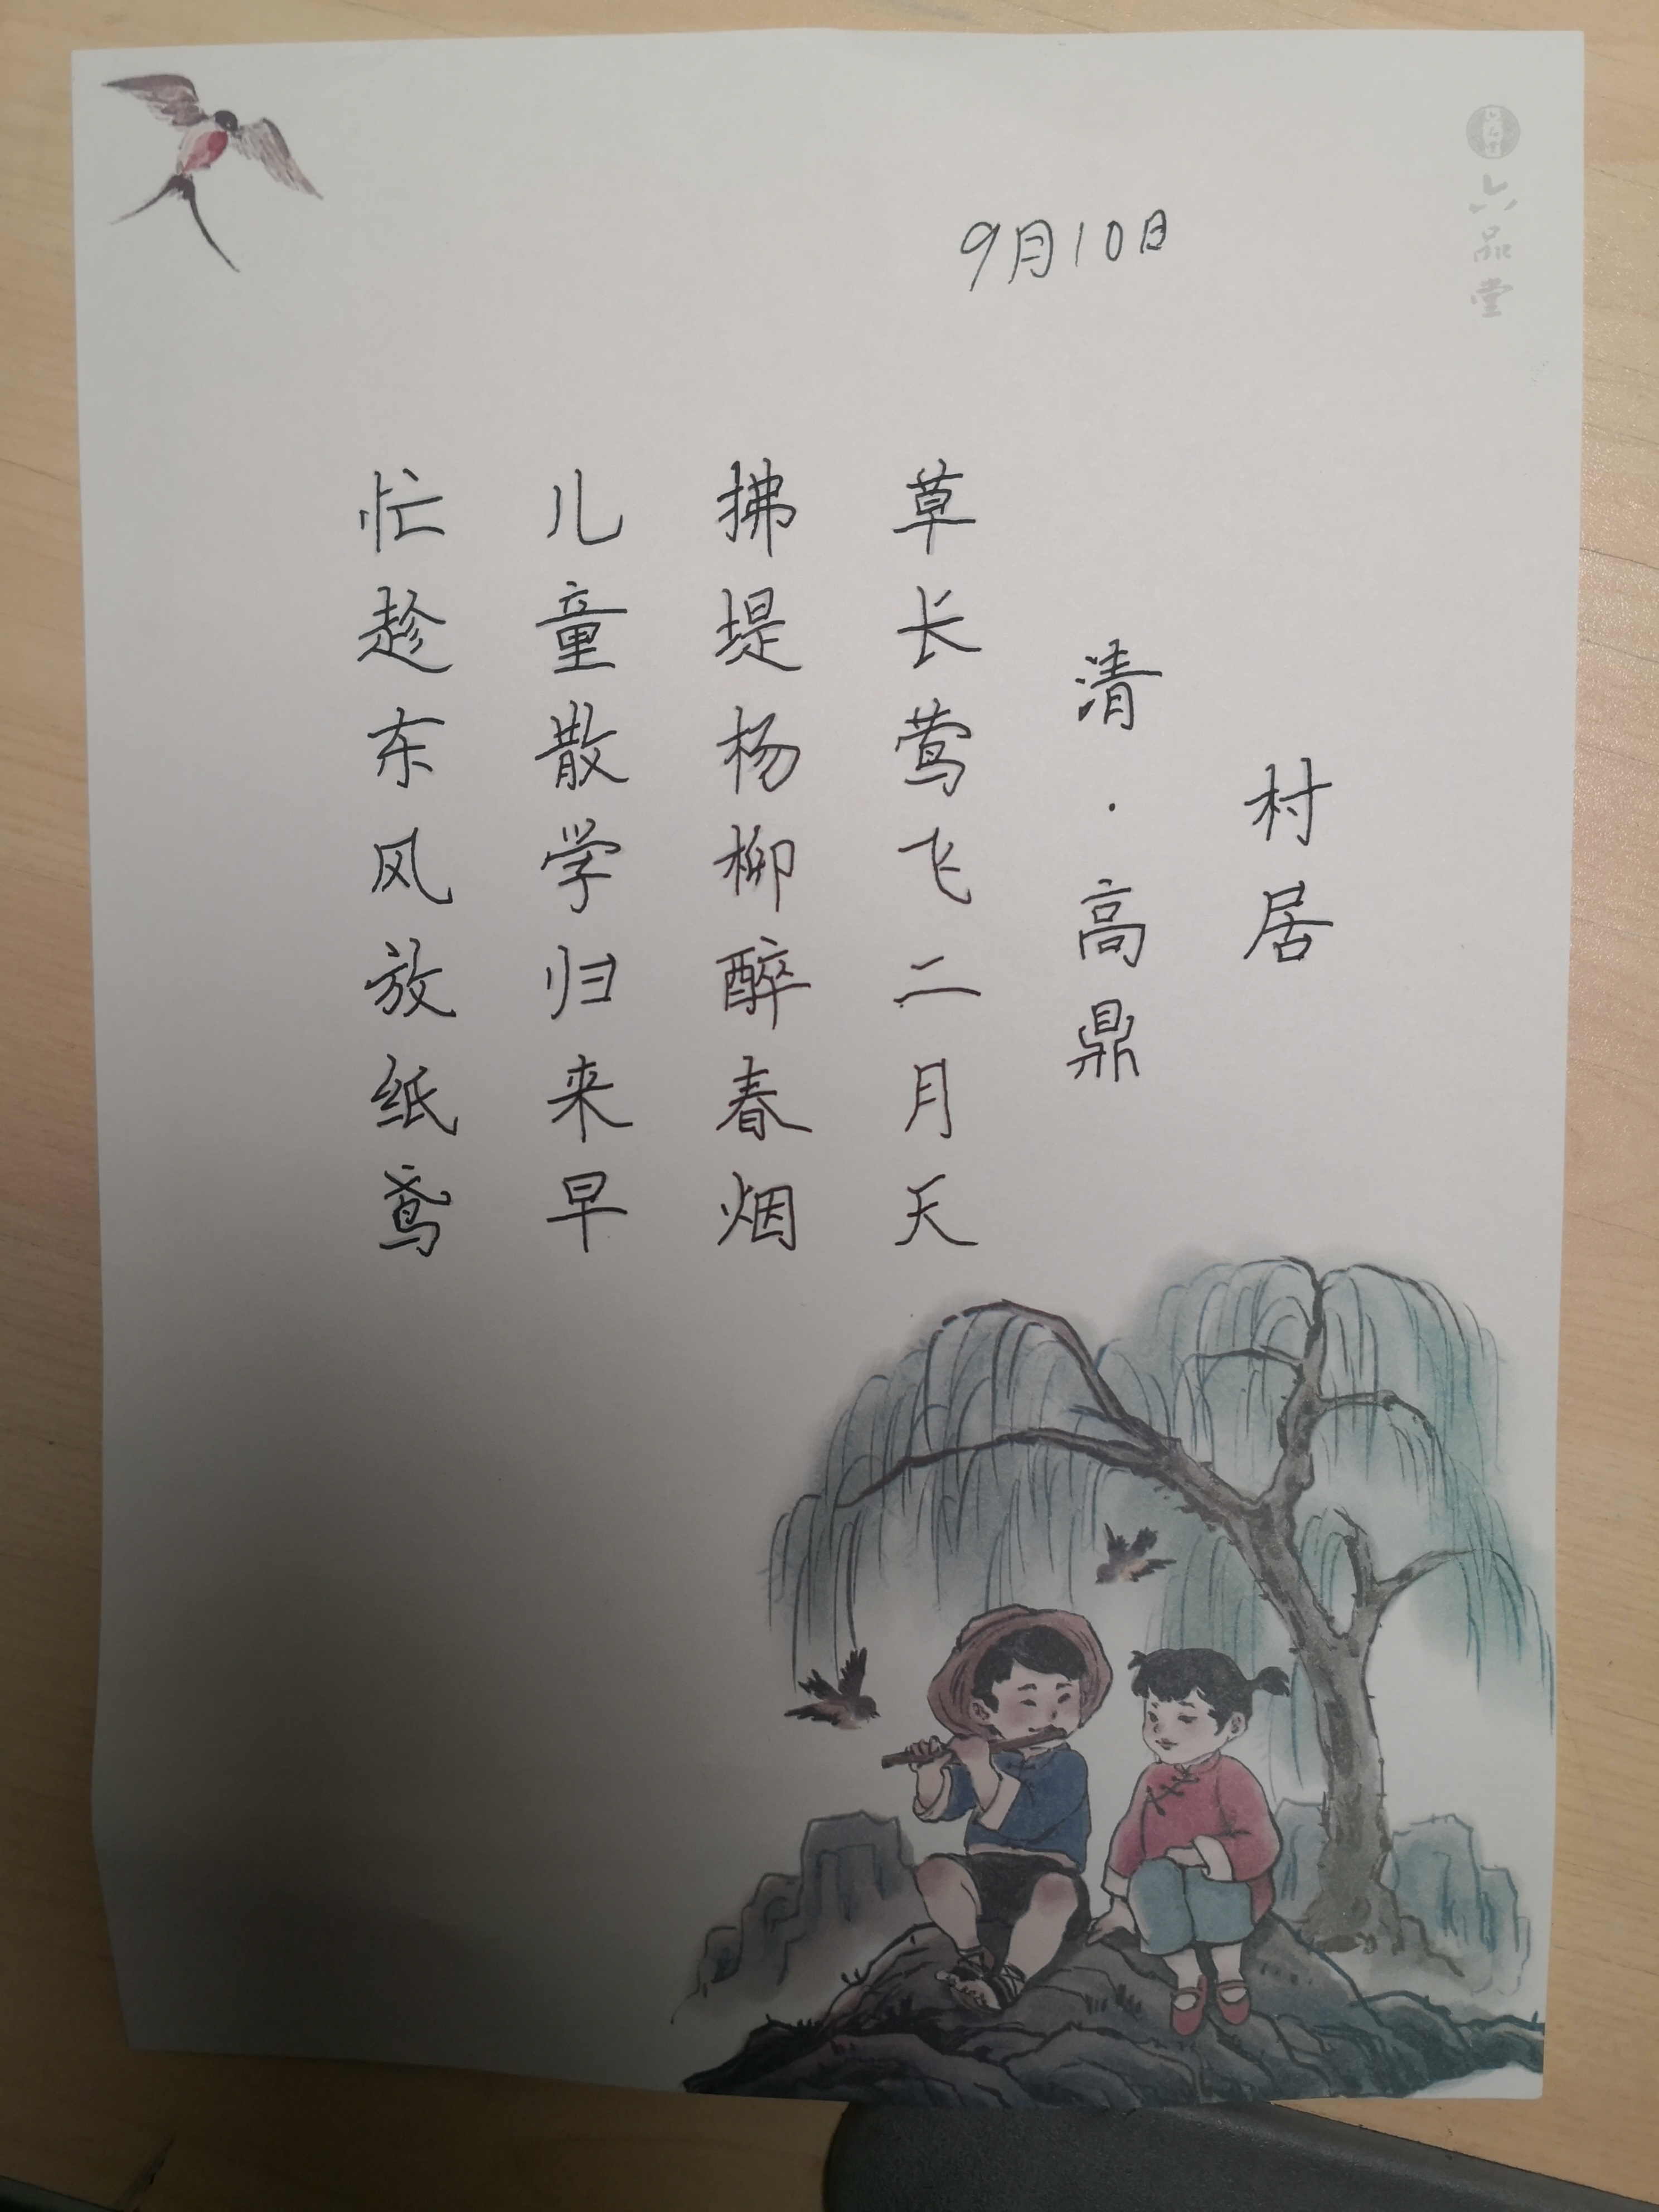 六品堂
9月10日
村居
清·高鼎
草长莺飞二月天
拂堤杨柳醉春烟
儿童散学归来早
忙趁东风放纸鸢